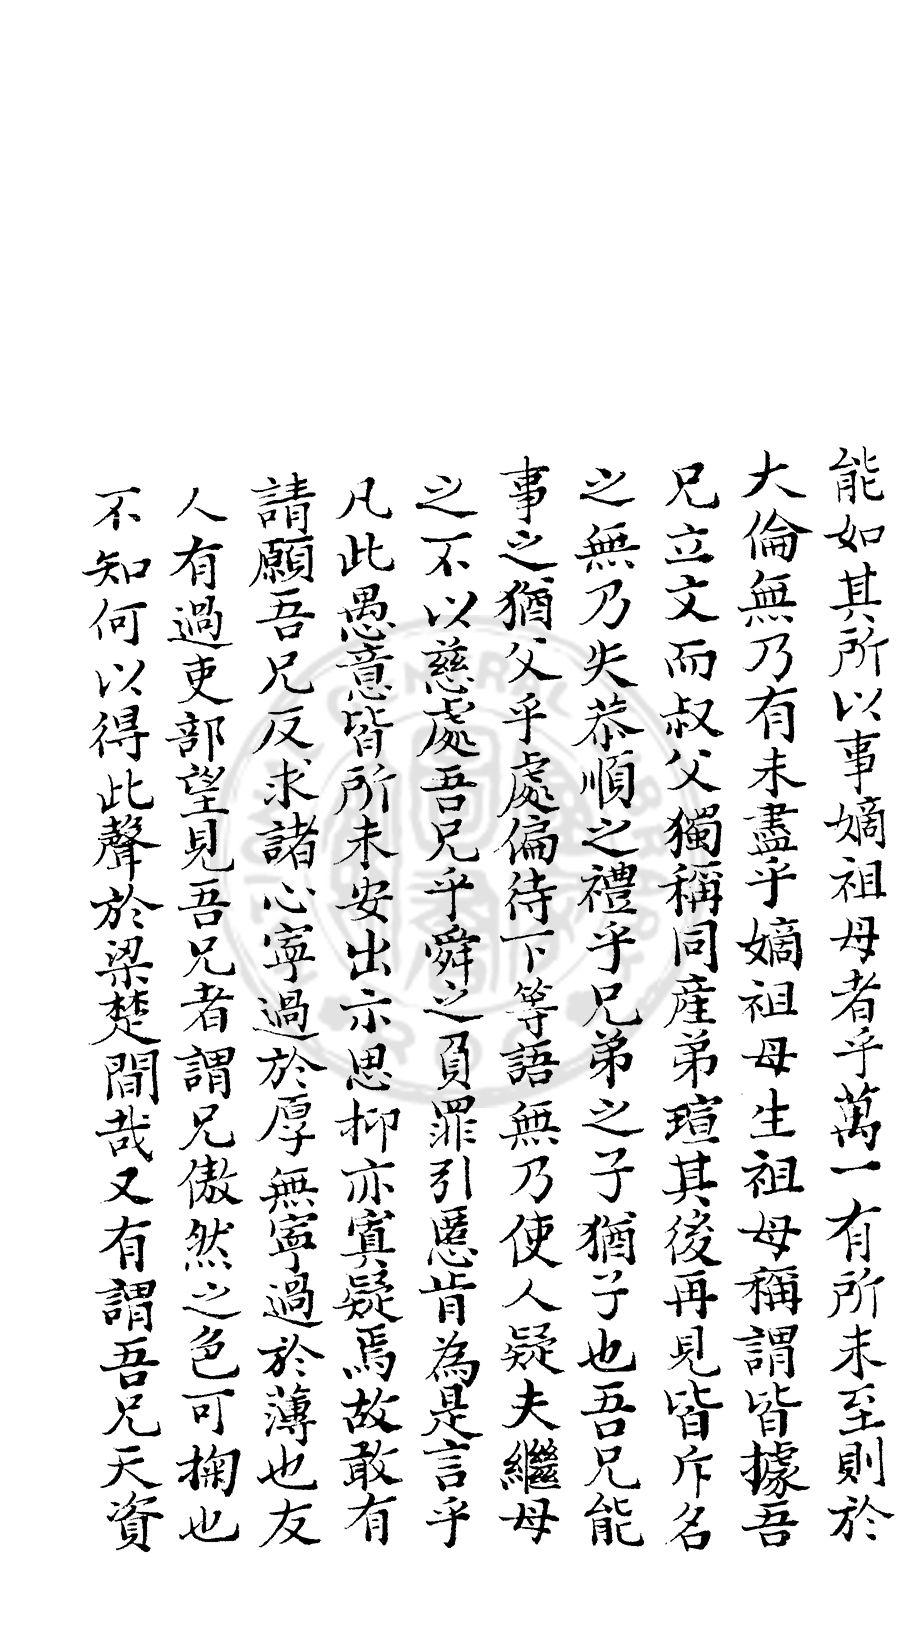 能如其所以事嫡祖母者乎萬一有所未至則於
大倫無乃有未盡乎嫡祖母生祖母稱謂皆據吾
兄立文而叔父獨稱同産弟瑄其後再見皆斥名
之無乃失恭順之禮乎兄弟之子猶子也吾兄能
事之猶父乎處偏待下等語無乃使人疑夫繼母
之不以慈處吾兄乎舜之負罪引慝肯為是言乎
凡此愚意皆所未安出示思抑亦寘疑焉故敢有
請願吾兄反求諸心寧過於厚無寧過於薄也友
人有過吏部望見吾兄者謂兄傲然之色可掬也
不知何以得此聲於梁楚間哉又有謂吾兄天資